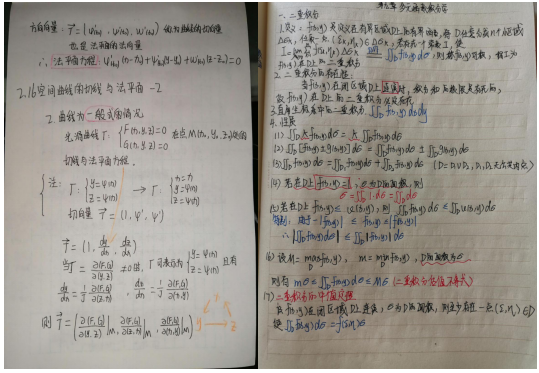 方向向量. T⃗ = (φ'(t₀), ψ'(t₀), ω'(t₀)) 为曲线的切向量
也是法平面的法向量
∴ 法平面方程 φ'(t₀)(x-x₀)+ψ'(t₀)(y-y₀)+ω'(t₀)(z-z₀)=0
2.16 空间曲线的切线与法平面-2
2. 曲线为一般式的情况
光滑曲线Γ: { F(x,y,z)=0 G(x,y,z)=0 在点M(x₀,y₀,z₀)处的
切线与法平面方程.
注: Γ: { y=φ(x) z=ψ(x) → Γ: { x=x y=φ(x) z=ψ(x)
切向量 T⃗ = (1, φ', ψ')
T⃗ = (1, dy/dx, dz/dx)
当J = ∂(F,G)/∂(y,z) ≠0时, Γ可表示为 { y=φ(x) z=ψ(x) 且有
dy/dx = 1/J ∂(F,G)/∂(z,x), dz/dx = 1/J ∂(F,G)/∂(x,y)
则 T⃗ = { ∂(F,G)/∂(y,z)|M, ∂(F,G)/∂(z,x)|M, ∂(F,G)/∂(x,y)|M }
x
y → z
第九章 多元函数积分学
一. 二重积分
在D上的二重积分
2. 二重积分的存在性:
当f(x,y)在闭区域D上连续时,
故f(x,y)在D上的二重积分必定存在
3. 直角坐标系中二重积分 ∬_D f(x,y)dxdy
4. 性质
(1) ∬_D k f(x,y)dσ = k ∬_D f(x,y)dσ
(2) ∬_D [f(x,y)±g(x,y)]dσ = ∬_D f(x,y)dσ ± ∬_D g(x,y)dσ
(3) ∬_D f(x,y)dσ = ∬_D₁ f(x,y)dσ + ∬_D₂ f(x,y)dσ (D=D₁∪D₂, D₁,D₂无公共内点)
(4) 若在D上f(x,y)=1, σ为D的面积, 则
σ = ∬_D 1·dσ = ∬_D dσ
(5) 若在D上f(x,y) ≤ φ(x,y), 则 ∬_D f(x,y)dσ ≤ ∬_D φ(x,y)dσ
特别, 由于 -|f(x,y)| ≤ f(x,y) ≤ |f(x,y)|
∴ |∬_D f(x,y)dσ| ≤ ∬_D |f(x,y)|dσ
(6) 设M = max_D f(x,y), m = min_D f(x,y), D的面积为σ
则有 mσ ≤ ∬_D f(x,y)dσ ≤ Mσ (二重积分估值不等式)
(7) 二重积分的中值定理
设f(x,y)在闭区域D上连续, σ为D的面积, 则至少存在一点(ξ,η)∈D
使 ∬_D f(x,y)dσ = f(ξ,η)σ